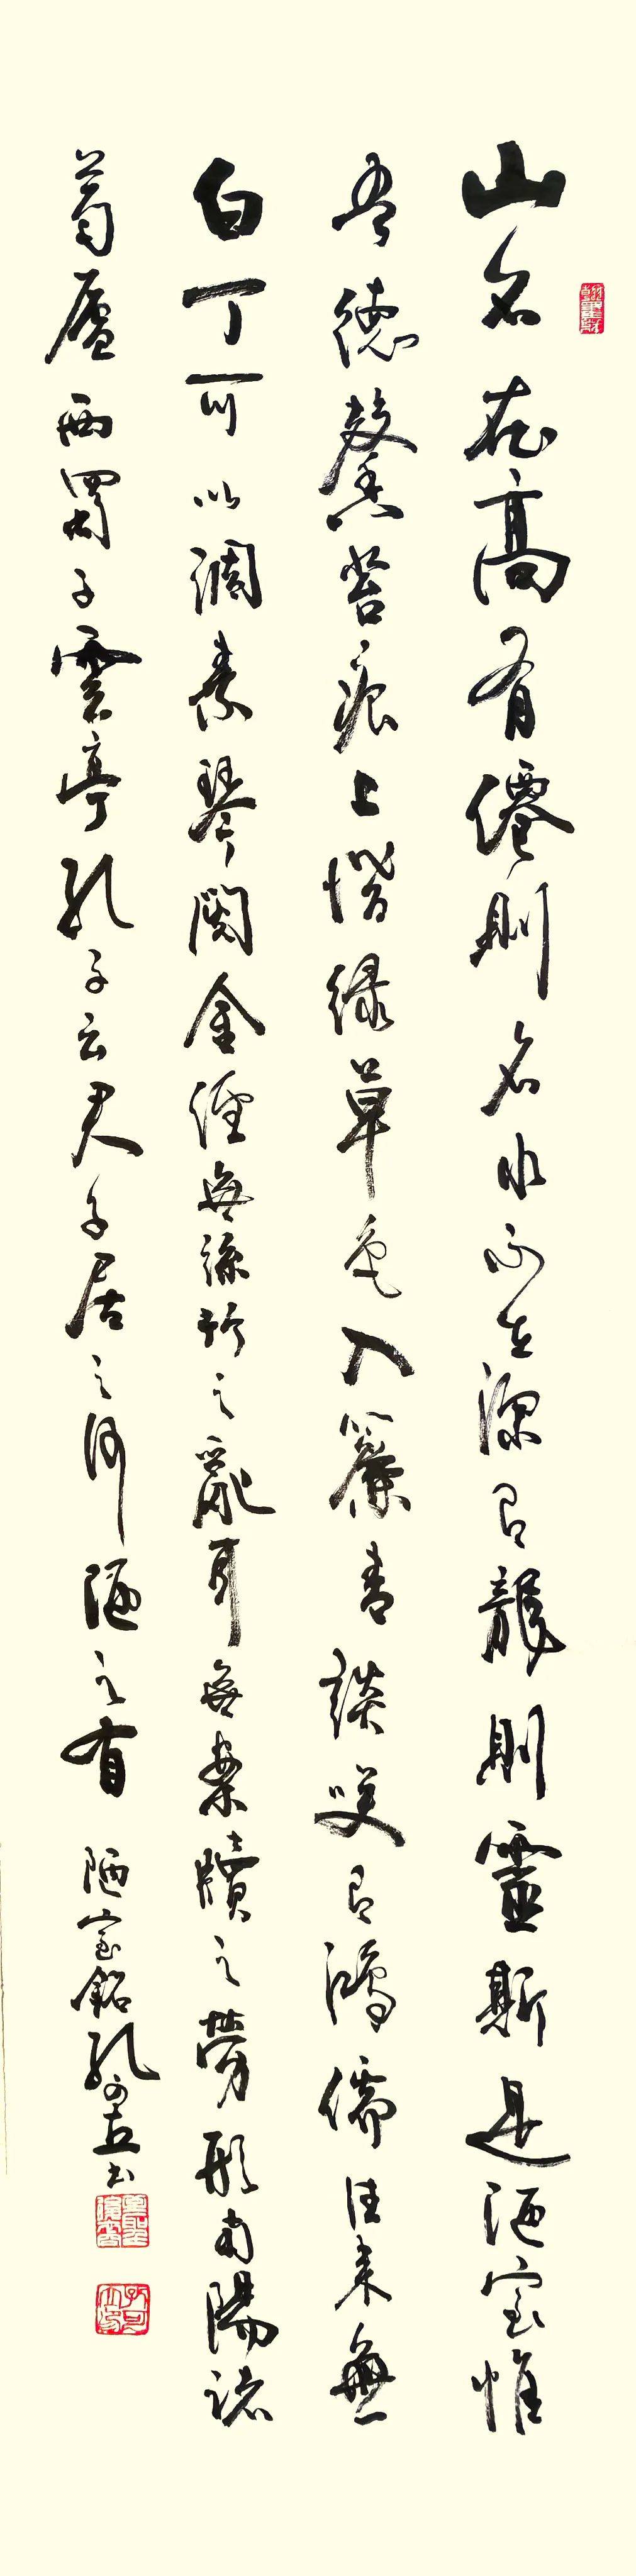 山名在高有僊則名水不在深有龍則靈斯是陋室惟
吾德馨苔痕上階綠草色入簾青談咲有鴻儒往來無
白丁可以調素琴閱金經無絲竹之亂耳無案牘之勞形南陽諸
葛廬西蜀子雲亭孔子云君子居之何陋之有
陋室銘孔可立書